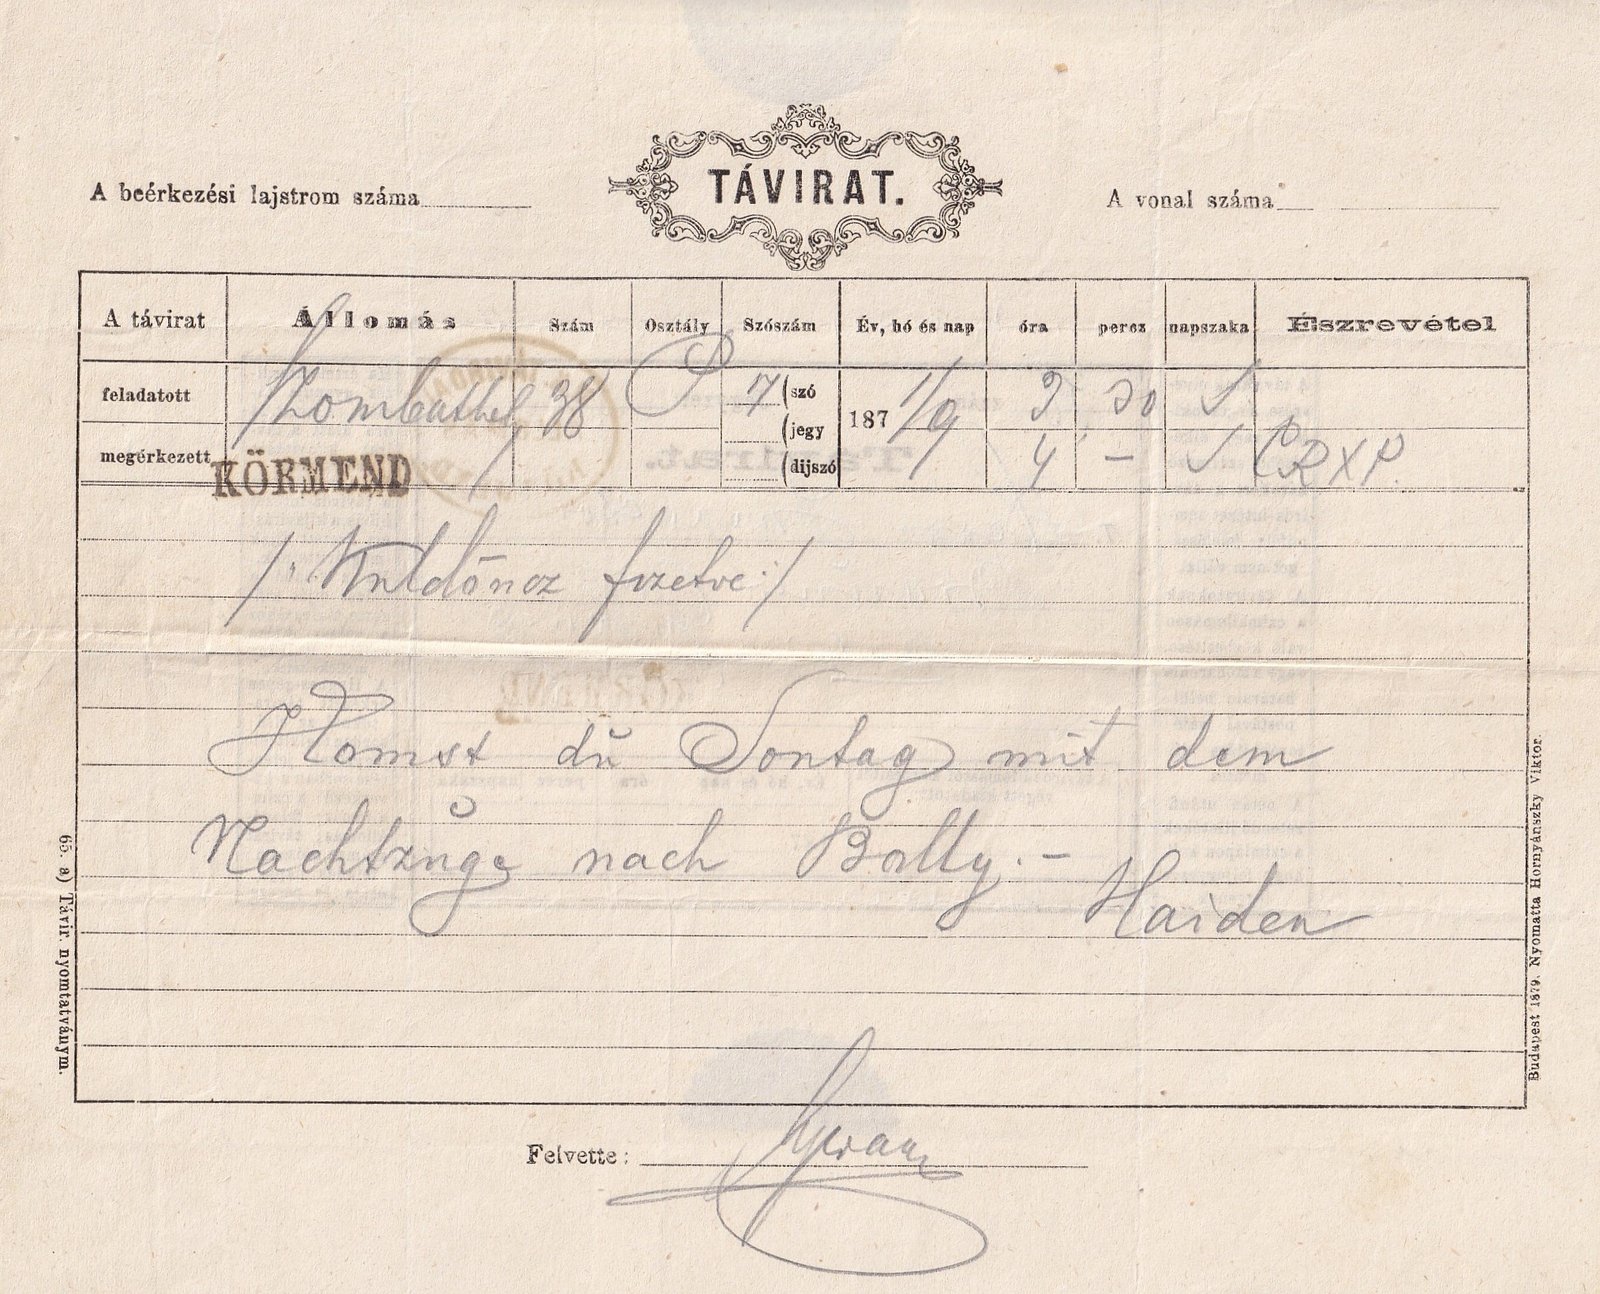 TÁVIRAT.
A beérkezési lajstrom száma
A vonal száma
A távirat Állomás Szám Osztály Szószám Év, hó és nap óra percz napszaka Észrevétel
feladatott Szombathel 38 P 17 (szó 187 1/9 3 30
(jegy
megérkezett KÖRMEND (díjszó 4 — RXP.
/: Küldöncz fizetve :/
Komst du Sontag mit dem
Nachtzuge nach Bolly. —
Haiden
Felvette:
65. a) Távir. nyomtatványm.
Budapest 1879. Nyomatta Hornyánszky Viktor.